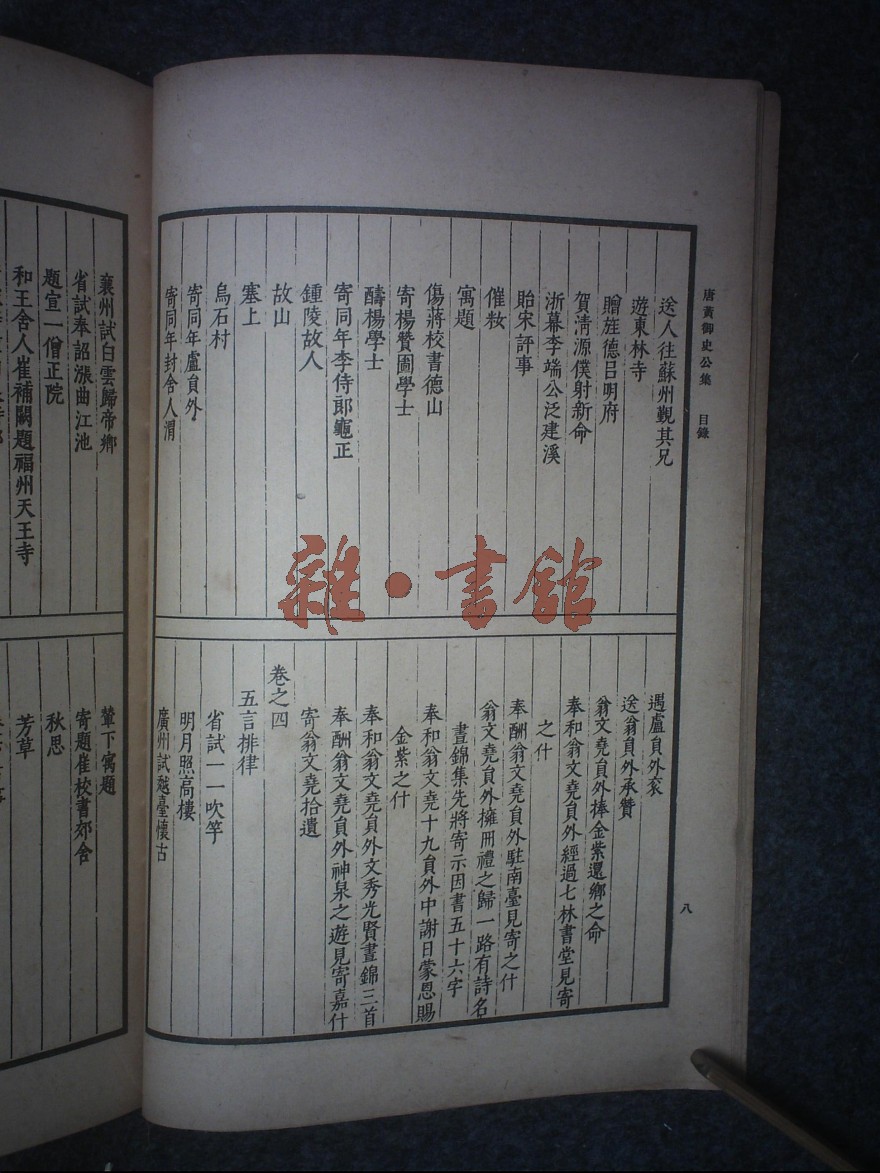 唐黃御史公集 目錄
八
送人往蘇州覲其兄
遊東林寺
贈旌德呂明府
賀清源僕射新命
浙幕李端公泛建溪
貽宋評事
催粧
寓題
傷蔣校書德山
寄楊贊圖學士
醻楊學士
寄同年李侍郎龜正
鍾陵故人
故山
塞上
烏石村
寄同年盧員外
寄同年封舍人渭
遇盧員外袞
送翁員外承贊
翁文堯員外捧金紫還鄉之命
奉和翁文堯員外經過七林書堂見寄
之什
奉酬翁文堯員外駐南臺見寄之什
翁文堯員外擁冊禮之歸一路有詩名
晝錦集先將寄示因書五十六字
奉和翁文堯十九員外中謝日蒙恩賜
金紫之什
奉和翁文堯員外文秀光賢晝錦三首
奉酬翁文堯員外神泉之遊見寄嘉什
寄翁文堯拾遺
卷之四
五言排律
省試一一吹竽
明月照高樓
廣州試越臺懷古
襄州試白雲歸帝鄉
省試奉詔漲曲江池
題宣一僧正院
和王舍人崔補闕題福州天王寺
輦下寓題
寄題崔校書郊舍
秋思
芳草
雜·書館